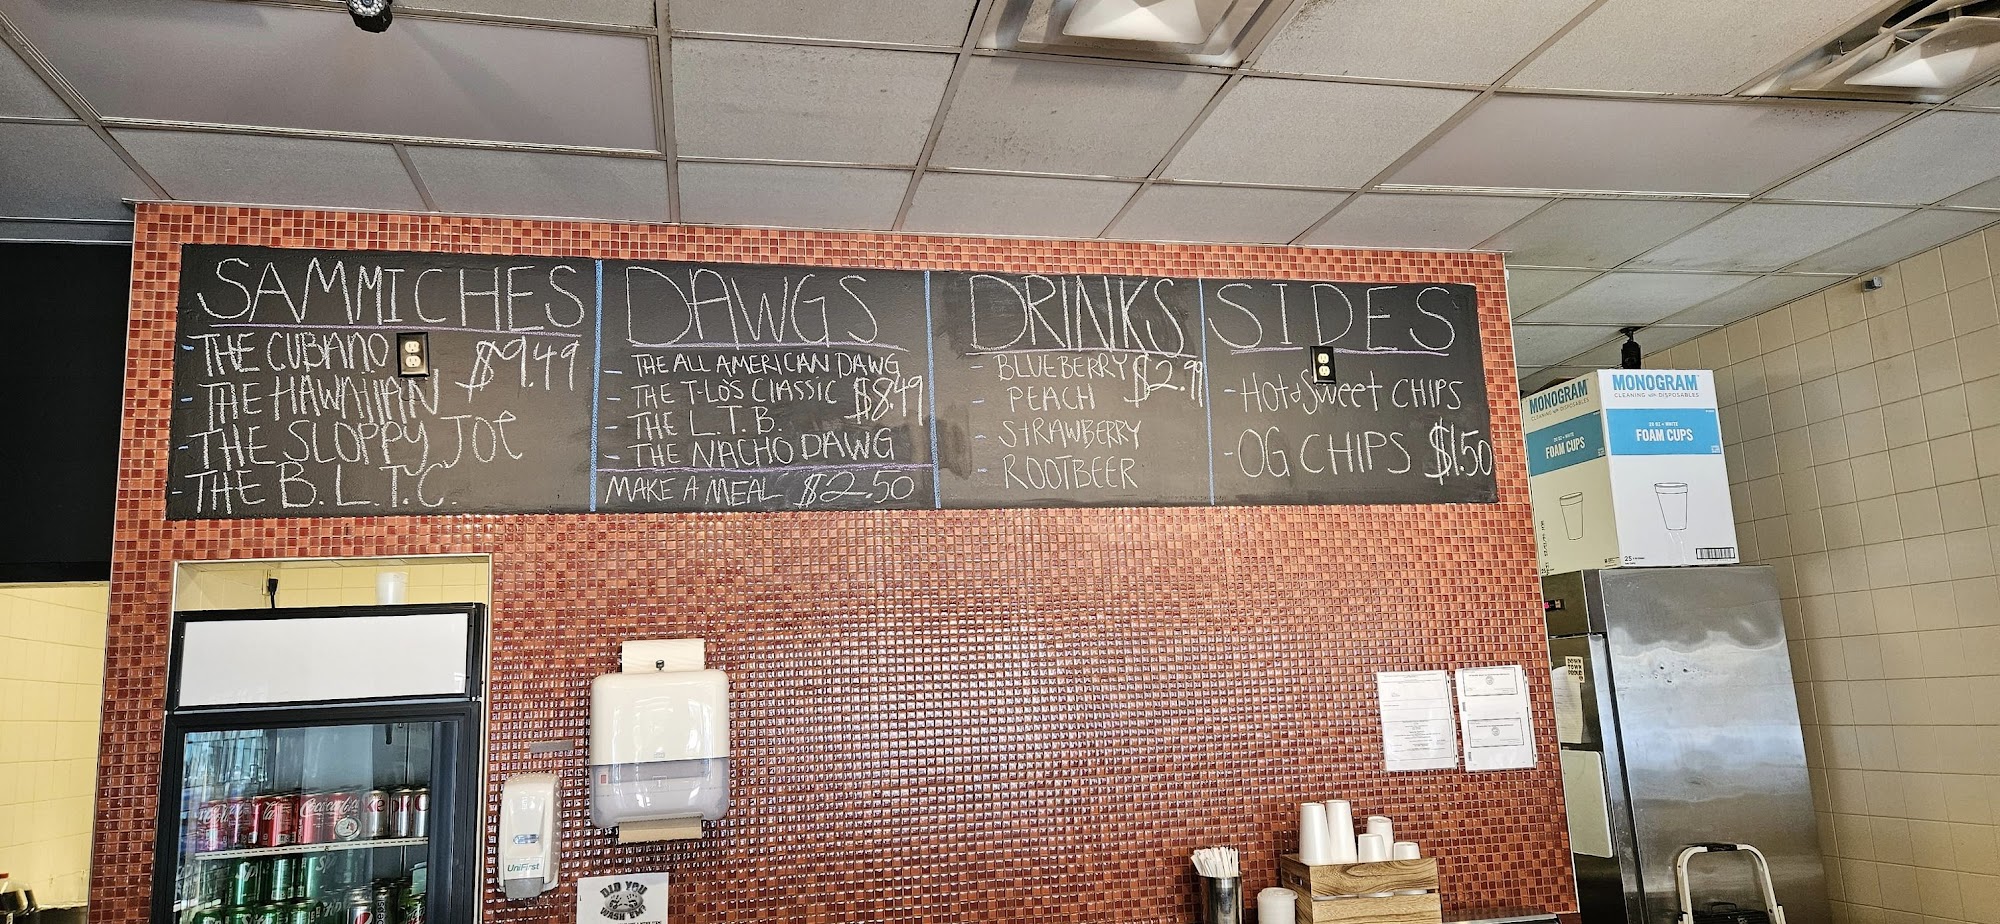 SAMMICHES
- THE CUBANO
- THE HAWAIIAN
$9.49
- THE SLOPPY JOE
- THE B.L.T.C.
DAWGS
- THE ALL AMERICAN DAWG
- THE T-LO'S CLASSIC
$8.49
- THE L.T.B.
- THE NACHO DAWG
MAKE A MEAL $2.50
DRINKS
- BLUEBERRY $2.99
- PEACH
- STRAWBERRY
- ROOTBEER
SIDES
- HOT & SWEET CHIPS
- OG CHIPS $1.50
MONOGRAM
FOAM CUPS
MONOGRAM
CLEANING DISPOSABLES
FOAM CUPS
25
DOWN
TOWN
PROUD
Coca-Cola
UniFirst
DID YOU
WASH 'EM?